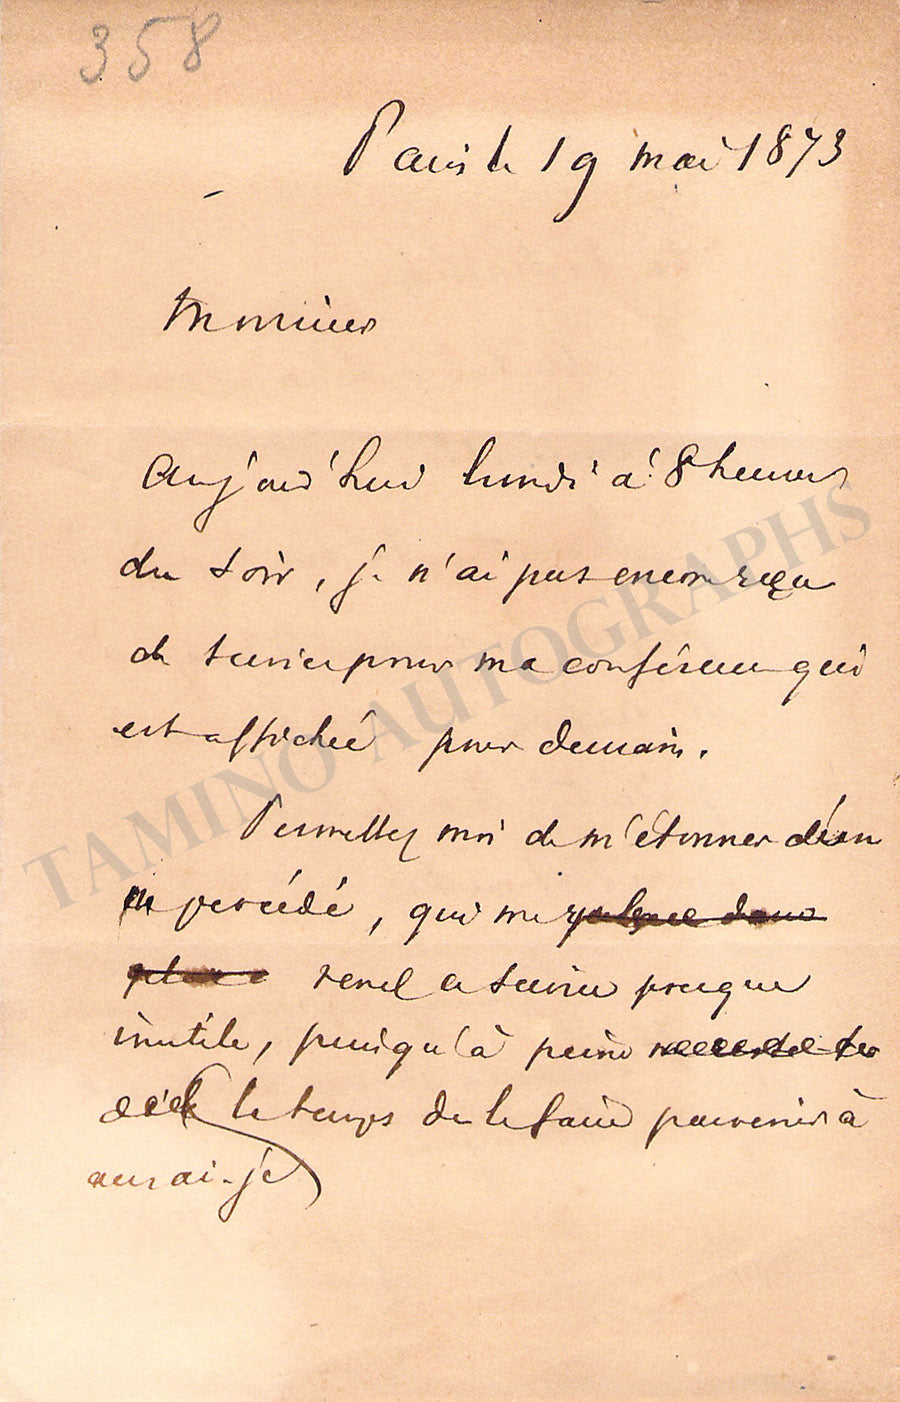 358
Paris le 19 mai 1873
Monsieur
Aujourd'hui lundi à 8 heures
du soir, je n'ai pas encore reçu
de service pour ma conférence qui
est affichée pour demain.
Permettez moi de m'étonner d'un
procédé, qui me
rend ce service presque
inutile, puisqu'à peine
le temps de le faire parvenir à
aurai-je
TAMINO AUTOGRAPHS